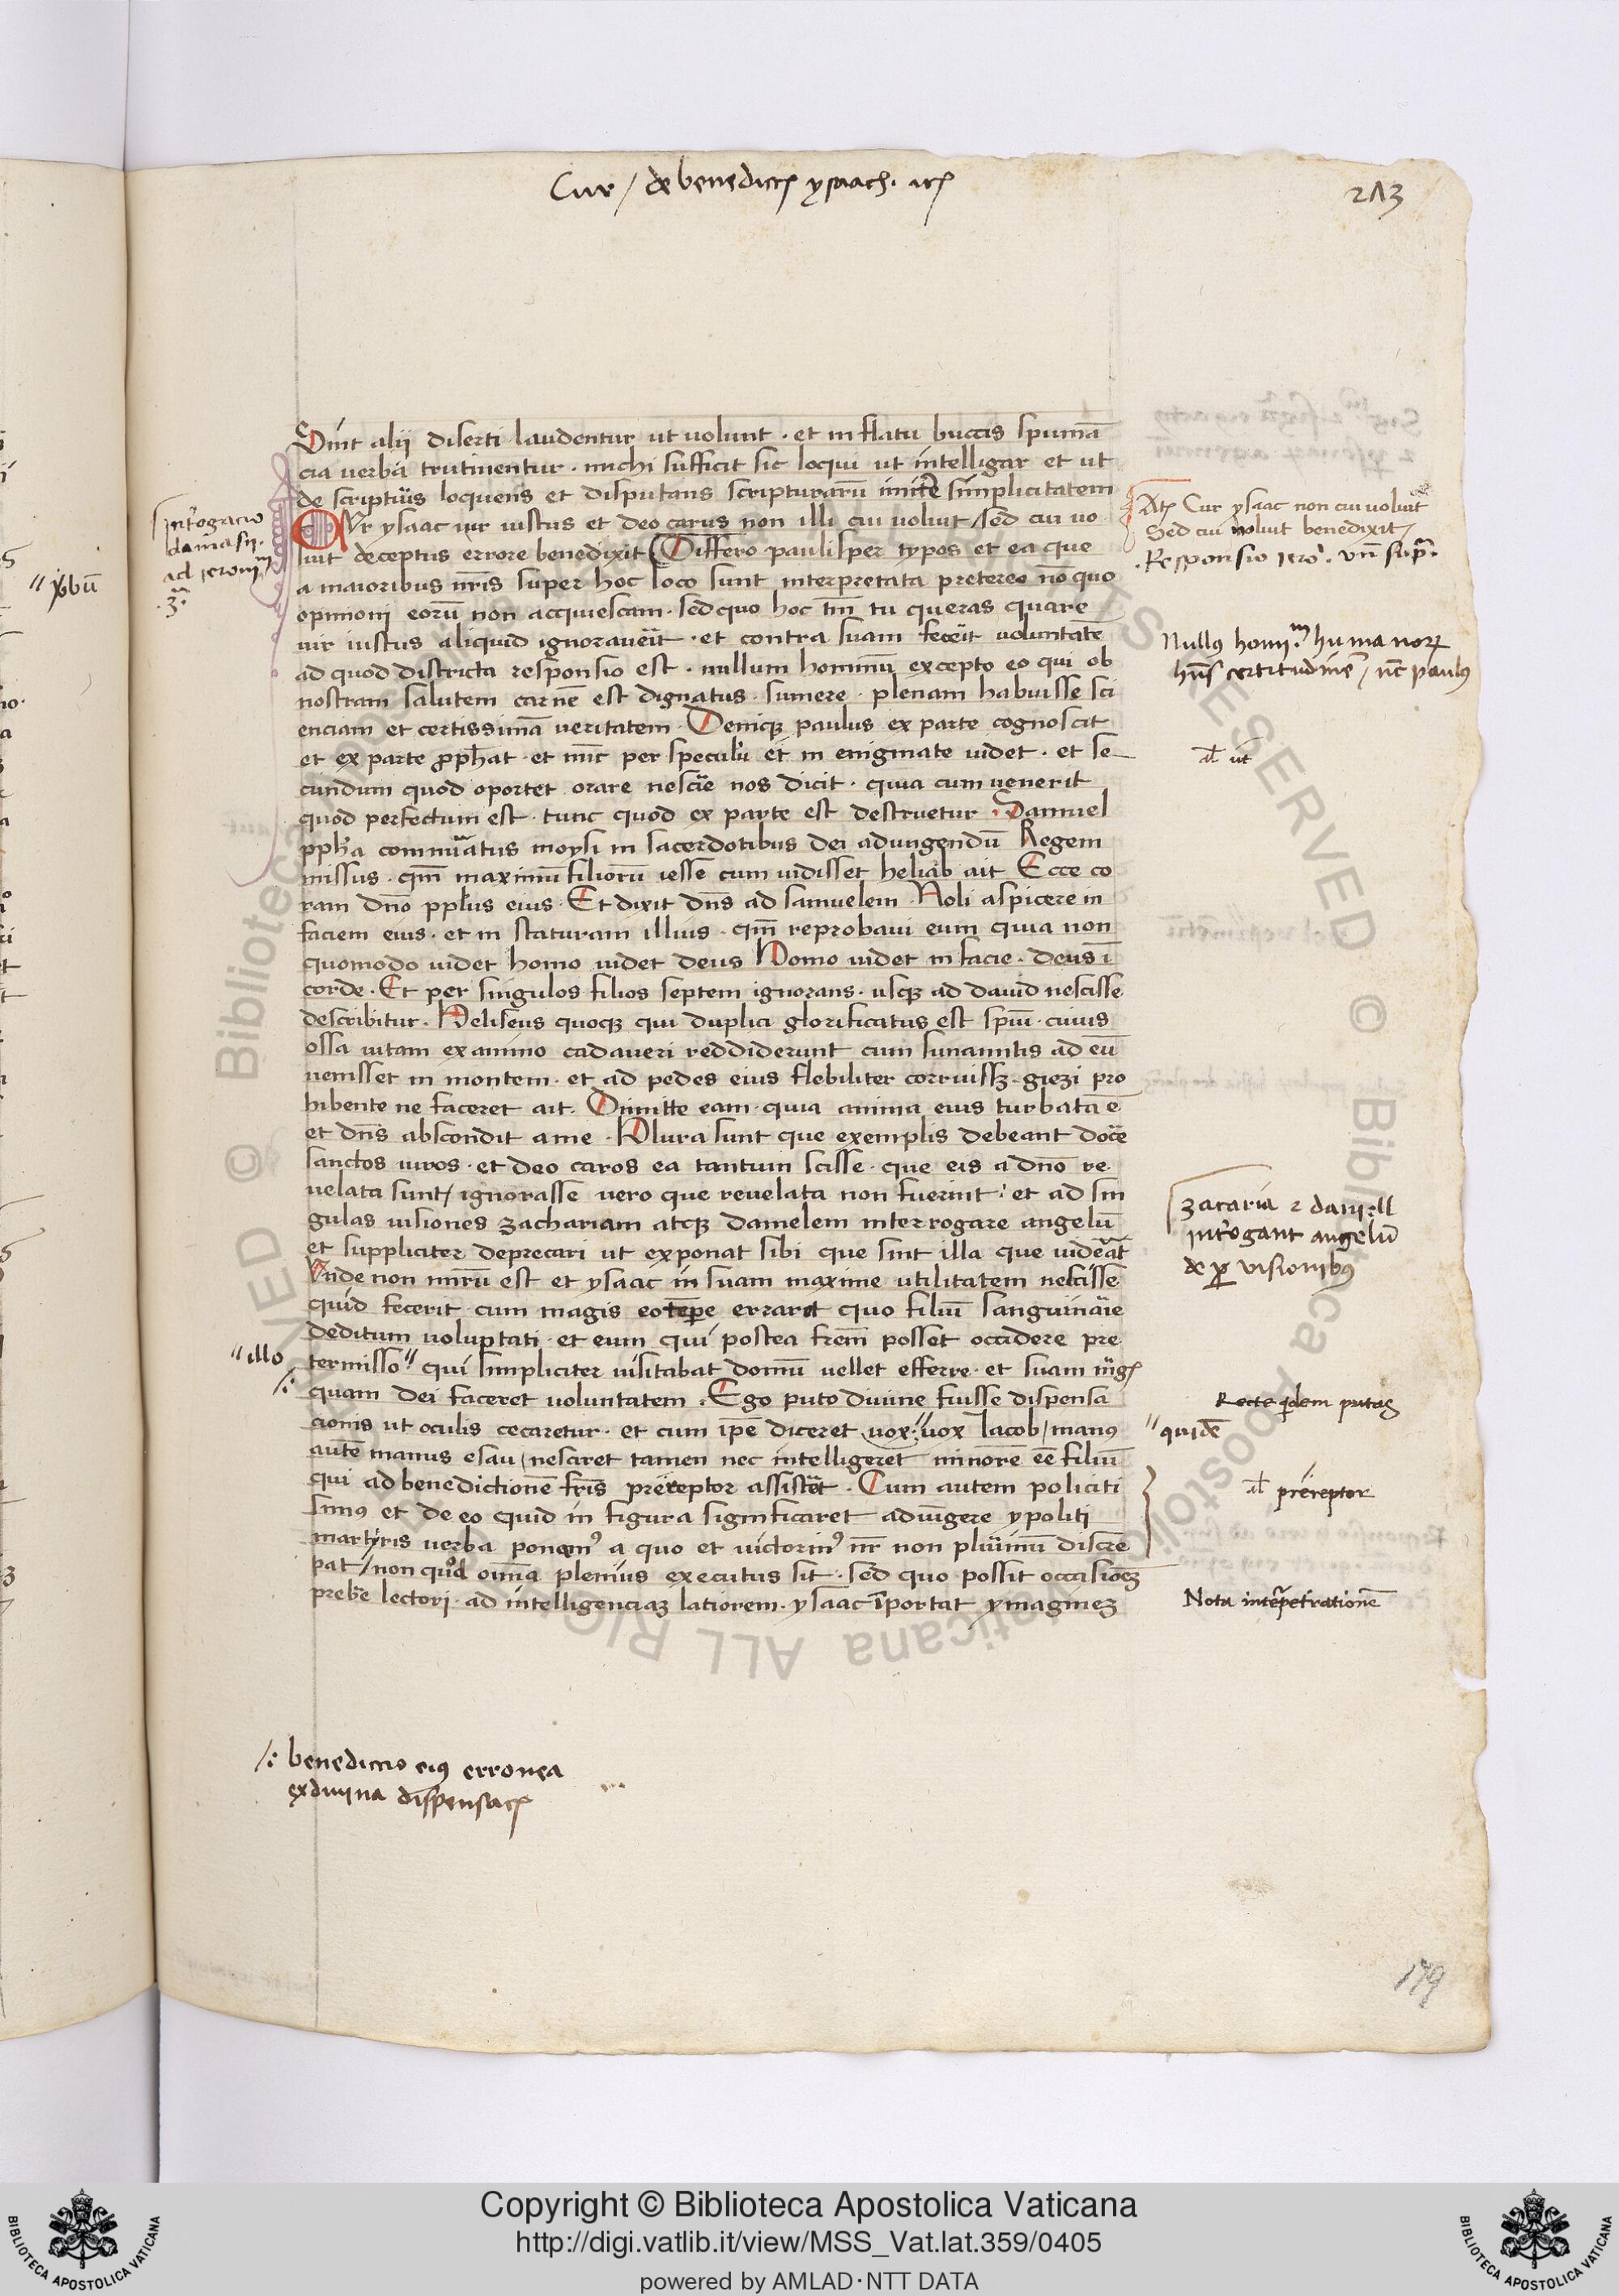 Cur / de benedictõe ysaach. atõe
213
Sint alij diserti laudentur ut volunt · et inflatu buccis spumã
cia verba trutinentur · michi sufficit sic loqui ut intelligar et ut
de scripturis loquens et disputans scripturarũ imiter simplicitatem
CVr ysaac vir iustus et deo carus non illi cui voluit / sed cui no
luit deceptus errore benedixit Differo paulisper typos et ea que
a maioribus nr̃is super hoc loco sunt interpretata pretereo nõ quo
opinionj eorũ non acquiescam · sed quo hoc tm̃ tu queras quare
vir iustus aliquid ignoraverit · et contra suam fecerit voluntatẽ
ad quod districta responsio est · nullum hominũ excepto eo qui ob
nostram salutem carnẽ est dignatus · sumere · plenam habuisse sci
enciam et certissimã veritatem · Deniq; paulus ex parte cognoscit
et ex parte ꝓphat · et nũc per speculũ et in enigmate videt · et se
cundum quod oportet orare nescire nos dicit · quia cum venerit
quod perfectum est · tunc quod ex parte est destruetur · Samuel
ꝓpha connũatus moysi in sacerdotibus dei ad ungendũ Regem
missus · qm̃ maximũ filiorũ iesse cum vidisset heliab ait Ecce co
ram dño xp̃us eius · Et dixit dñs ad samuelem · Noli aspicere in
faciem eius · et in staturam illius · qm̃ reprobavi eum quia non
quomodo videt homo videt deus Homo videt in facie · deus ĩ
corde · Et per singulos filios septem ignorans · usq; ad david nescisse
describitur · Heliseus quoq; qui duplici glorificatus est spũ · cuius
ossa vitam exanimo cadaveri reddiderunt cum sunamitis ad eũ
venisset in montem · et ad pedes eius flebiliter corruissz · giezi pro
hibente ne faceret ait · Dimitte eam · quia anima eius turbata ẽ
et dñs abscondit a me · Plura sunt que exemplis debeant docere
sanctos viros · et deo caros ea tantum scisse · que eis a dño re
velata sunt / ignorasse vero que revelata non fuerint · et ad sin
gulas visiones zachariam atq; danielem interrogare angelũ
et suppliciter deprecari ut exponat sibi que sint illa que viderat
Vnde non mirũ est et ysaac in suam maxime utilitatem nescisse
quid fecerit cum magis eo tempe erraret quo filiũ sanguinarie
deditum voluptati · et eum qui postea frẽm posset occidere pre
termisso" qui simpliciter visitabat domũ vellet efferre · et suam mag̃
quam dei faceret voluntatem · Ego puto divine fuisse dispensa
cionis ut oculis cecaretur · et cum ip̃e diceret vox" vox Iacob / manus
autẽ manus esau / nesciret tamen nec intelligeret minorẽ eẽ filiũ
qui ad benedictionẽ fr̃is prereptor assisteret · Cum autem policiti
simus et de eo quid in figura significaret adiũgere ypoliti
martyris verba ponam' a quo et victorin' nr̃ non plurimũ discre
pat / non quod omĩa plenius executus sit · sed quo possit occasionez
preber̃e lectori · ad intelligenciaz laciorem · ysaac ĩportat ymaginez
Int'ogacio
damasij.
ad ieronimũ
.3ª.
Atõ Cur ysaac non cui voluit
Sed cui noluit benedixit
.Responsio iero͛. vñ sup͛.
Nullus homi'm humanor
hñs certitudinẽ / nẽ paulus
al̃ ut
zacaria 2 daniell
int'ogant angelũ
de visionibus
"illo
/:
Recte q̃dem putas
"quidẽ
al̃ prereptor
Nota interpetrationẽ
/: benedictio eius erronea
ex divina dispensacõe
"ẏbũ
179
Copyright © Biblioteca Apostolica Vaticana
http://digi.vatlib.it/view/MSS_Vat.lat.359/0405
powered by AMLAD·NTT DATA
BIBLIOTECA APOSTOLICA VATICANA
BIBLIOTECA APOSTOLICA VATICANA